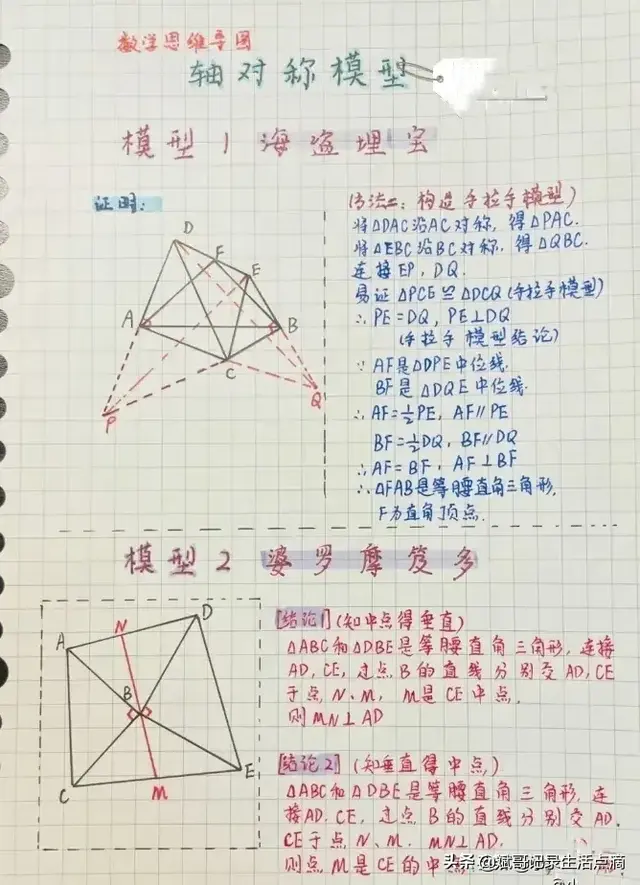 数学思维导图
轴对称模型
模型1 海盗埋宝
证明:
D
F
E
A
B
C
P
Q
(方法二: 构造手拉手模型)
将△DAC沿AC对称, 得△PAC.
将△EBC沿BC对称, 得△QBC.
连接EP, DQ.
易证△PCE≌△DCQ(手拉手模型)
∴PE=DQ, PE⊥DQ
(手拉手模型结论)
∵AF是△DPE中位线.
BF是△DQE中位线.
∴AF=½PE, AF∥PE
BF=½DQ, BF∥DQ
∴AF=BF, AF⊥BF
∴△FAB是等腰直角三角形,
F为直角顶点.
模型2 婆罗摩笈多
A
N
D
B
C
M
E
[结论1](知中点得垂直)
△ABC和△DBE是等腰直角三角形, 连接
AD, CE, 过点B的直线分别交AD, CE
于点N、M, M是CE中点,
则MN⊥AD
[结论2] (知垂直得中点)
△ABC和△DBE是等腰直角三角形, 连
接AD, CE, 过点B的直线分别交AD,
CE于点N、M, MN⊥AD,
则点M是CE的中
头条@斌哥记录生活点滴